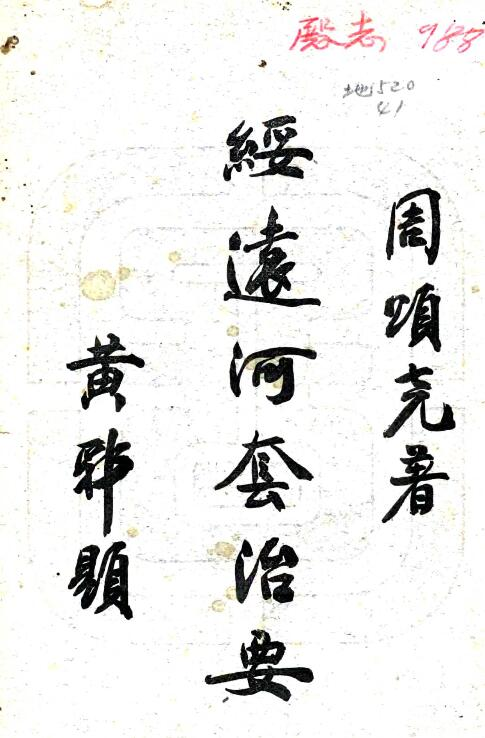 988
地520
41
周頌尧著
綏遠河套治要
黄郛題